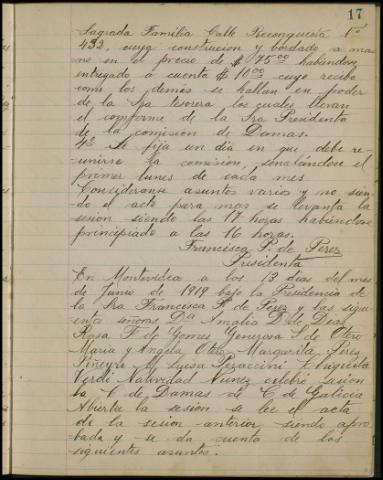 17
Sagrada Familia Calle Reconquista Nº
432, cuya construcion y bordado a ma
no en el precio de $ 75.00 habiendose
entregado á cuenta $ 10.00 cuyo recibo
como los demás se hallan en poder
de la Sra tesorera, los cuales llevan
el conforme de la Sra Presidenta
de la comisión de Damas.
4º Se fija un dia en que debe re-
unirse la comisión, señalándose el
primer lunes de cada mes
Considerанse asuntos varios y no sien
do el acto para mas se levanta la
sesion siendo las 17 horas habiendose
principiado a las 16 horas.
Francisca P. de Perez
Presidenta
En Montevideo a los 13 dias del mes
de Junio de 1919 bajo la Presidencia de
la Sra Francisca P. de Perez y las sigui
entes señoras Dª Amalia D. de Deus
Rosa F. de Gomez Generosa S de Otero
Maria y Angela Otero, Margarita Perez
Piñeyro y Luisa Peraccini
Verde Natividad Nunez celebró sesion
la C de Damas de C de Galicia
Abierta la sesion se lee el acta
de la sesion anterior siendo apro
bada y se da cuenta de los
siguientes asuntos.